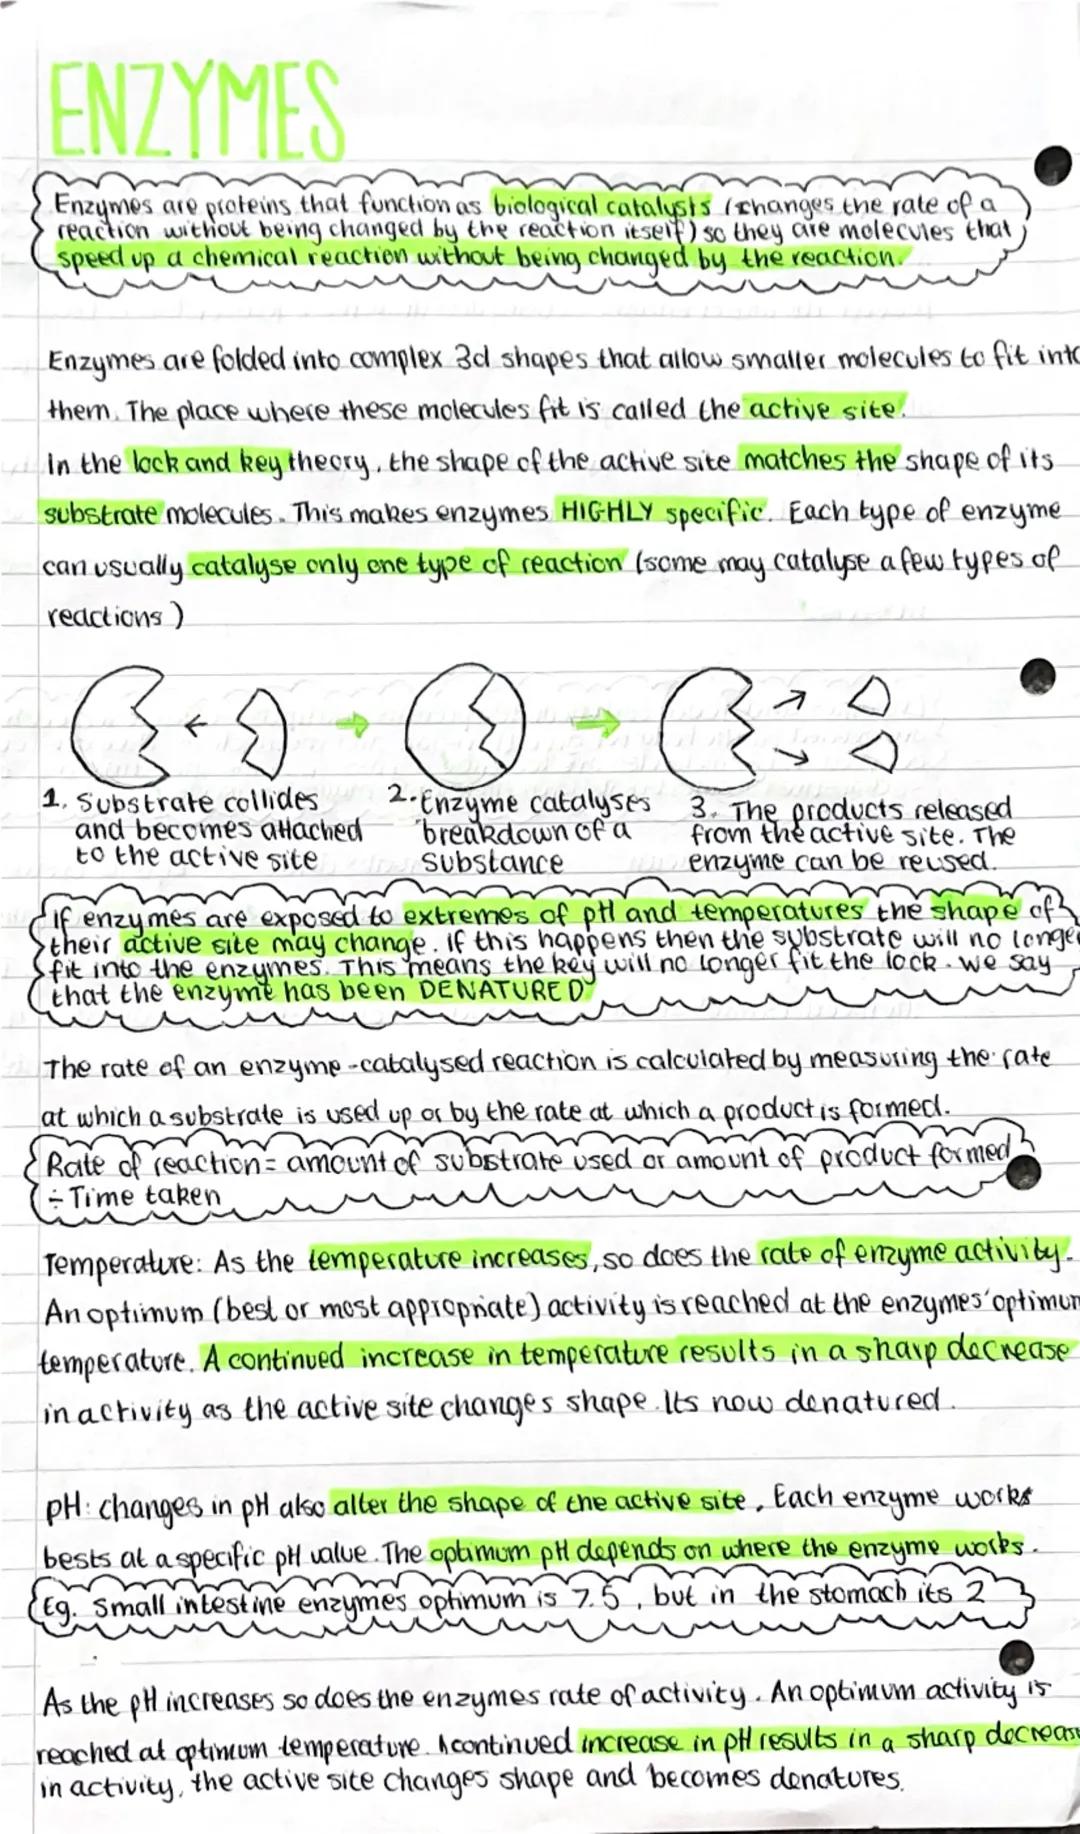 ENZYMES
Enzymes are proteins that function as biological catalysts (changes the rate of a
reaction without being changed by the reaction itself) so they are molecules that
speed up a chemical reaction without being changed by the reaction.
Enzymes are folded into complex 3d shapes that allow smaller molecules to fit into
them. The place where these molecules fit is called the active site.
In the lock and key theory, the shape of the active site matches the shape of its
substrate molecules. This makes enzymes HIGHLY specific. Each type of enzyme
can usually catalyse only one type of reaction (some may catalyse a few types of
reactions)
1. Substrate collides
and becomes attached
to the active site
2. Enzyme catalyses
breakdown of a
substance
3. The products released
from the active site. The
enzyme can be reused.
If enzymes are exposed to extremes of pH and temperatures the shape of
their active site may change. If this happens then the substrate will no longer
fit into the enzymes. This means the key will no longer fit the lock. We say
that the enzyme has been DENATURED
The rate of an enzyme-catalysed reaction is calculated by measuring the rate
at which a substrate is used up or by the rate at which a product is formed.
Rate of reaction = amount of substrate used or amount of product formed
÷ Time taken
Temperature: As the temperature increases, so does the rate of enzyme activity.
An optimum (best or most appropriate) activity is reached at the enzymes' optimum
temperature. A continued increase in temperature results in a sharp decrease
in activity as the active site changes shape. Its now denatured.
pH: changes in pH also alter the shape of the active site. Each enzyme works
bests at a specific pH value. The optimum pH depends on where the enzyme works.
Eg. Small intestine enzymes optimum is 7.5, but in the stomach its 2
As the pH increases so does the enzymes rate of activity. An optimum activity is
reached at optimum temperature. A continued increase in pH results in a sharp decrease
in activity, the active site changes shape and becomes denatures.